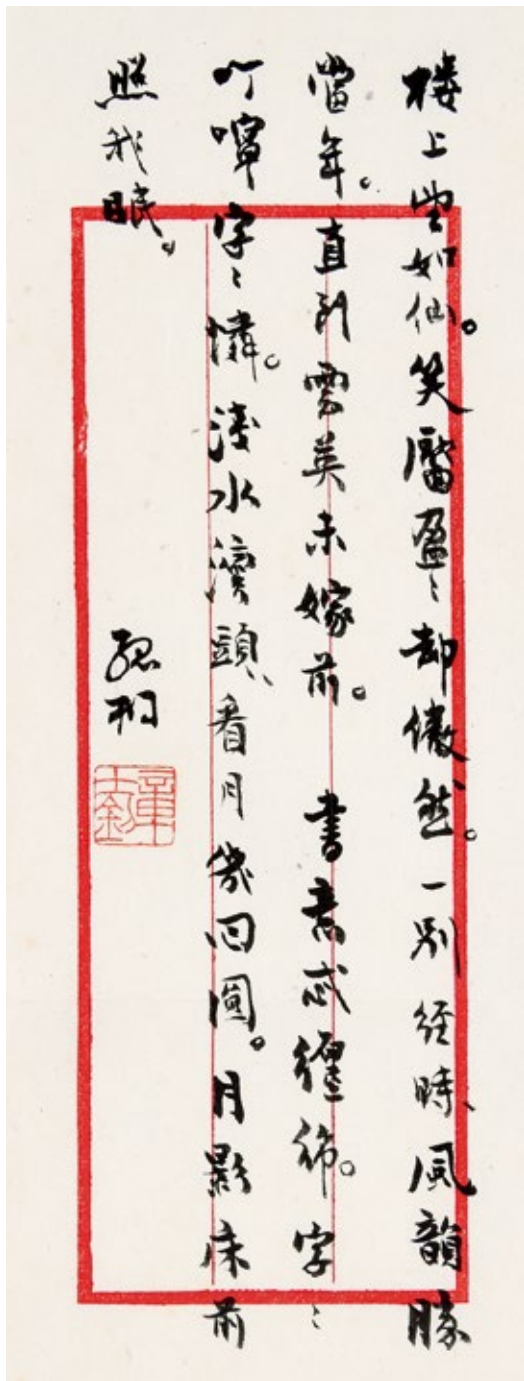 樓上望如仙。笑靨盈〻却傲然。一別經時、風韻勝
當年。直到雲英未嫁前。 書意忒纏綿。字〻
叮嚀字〻憐。淺水灣頭、看月幾回圓。月影床前
照我眠。
孤桐
章士釗